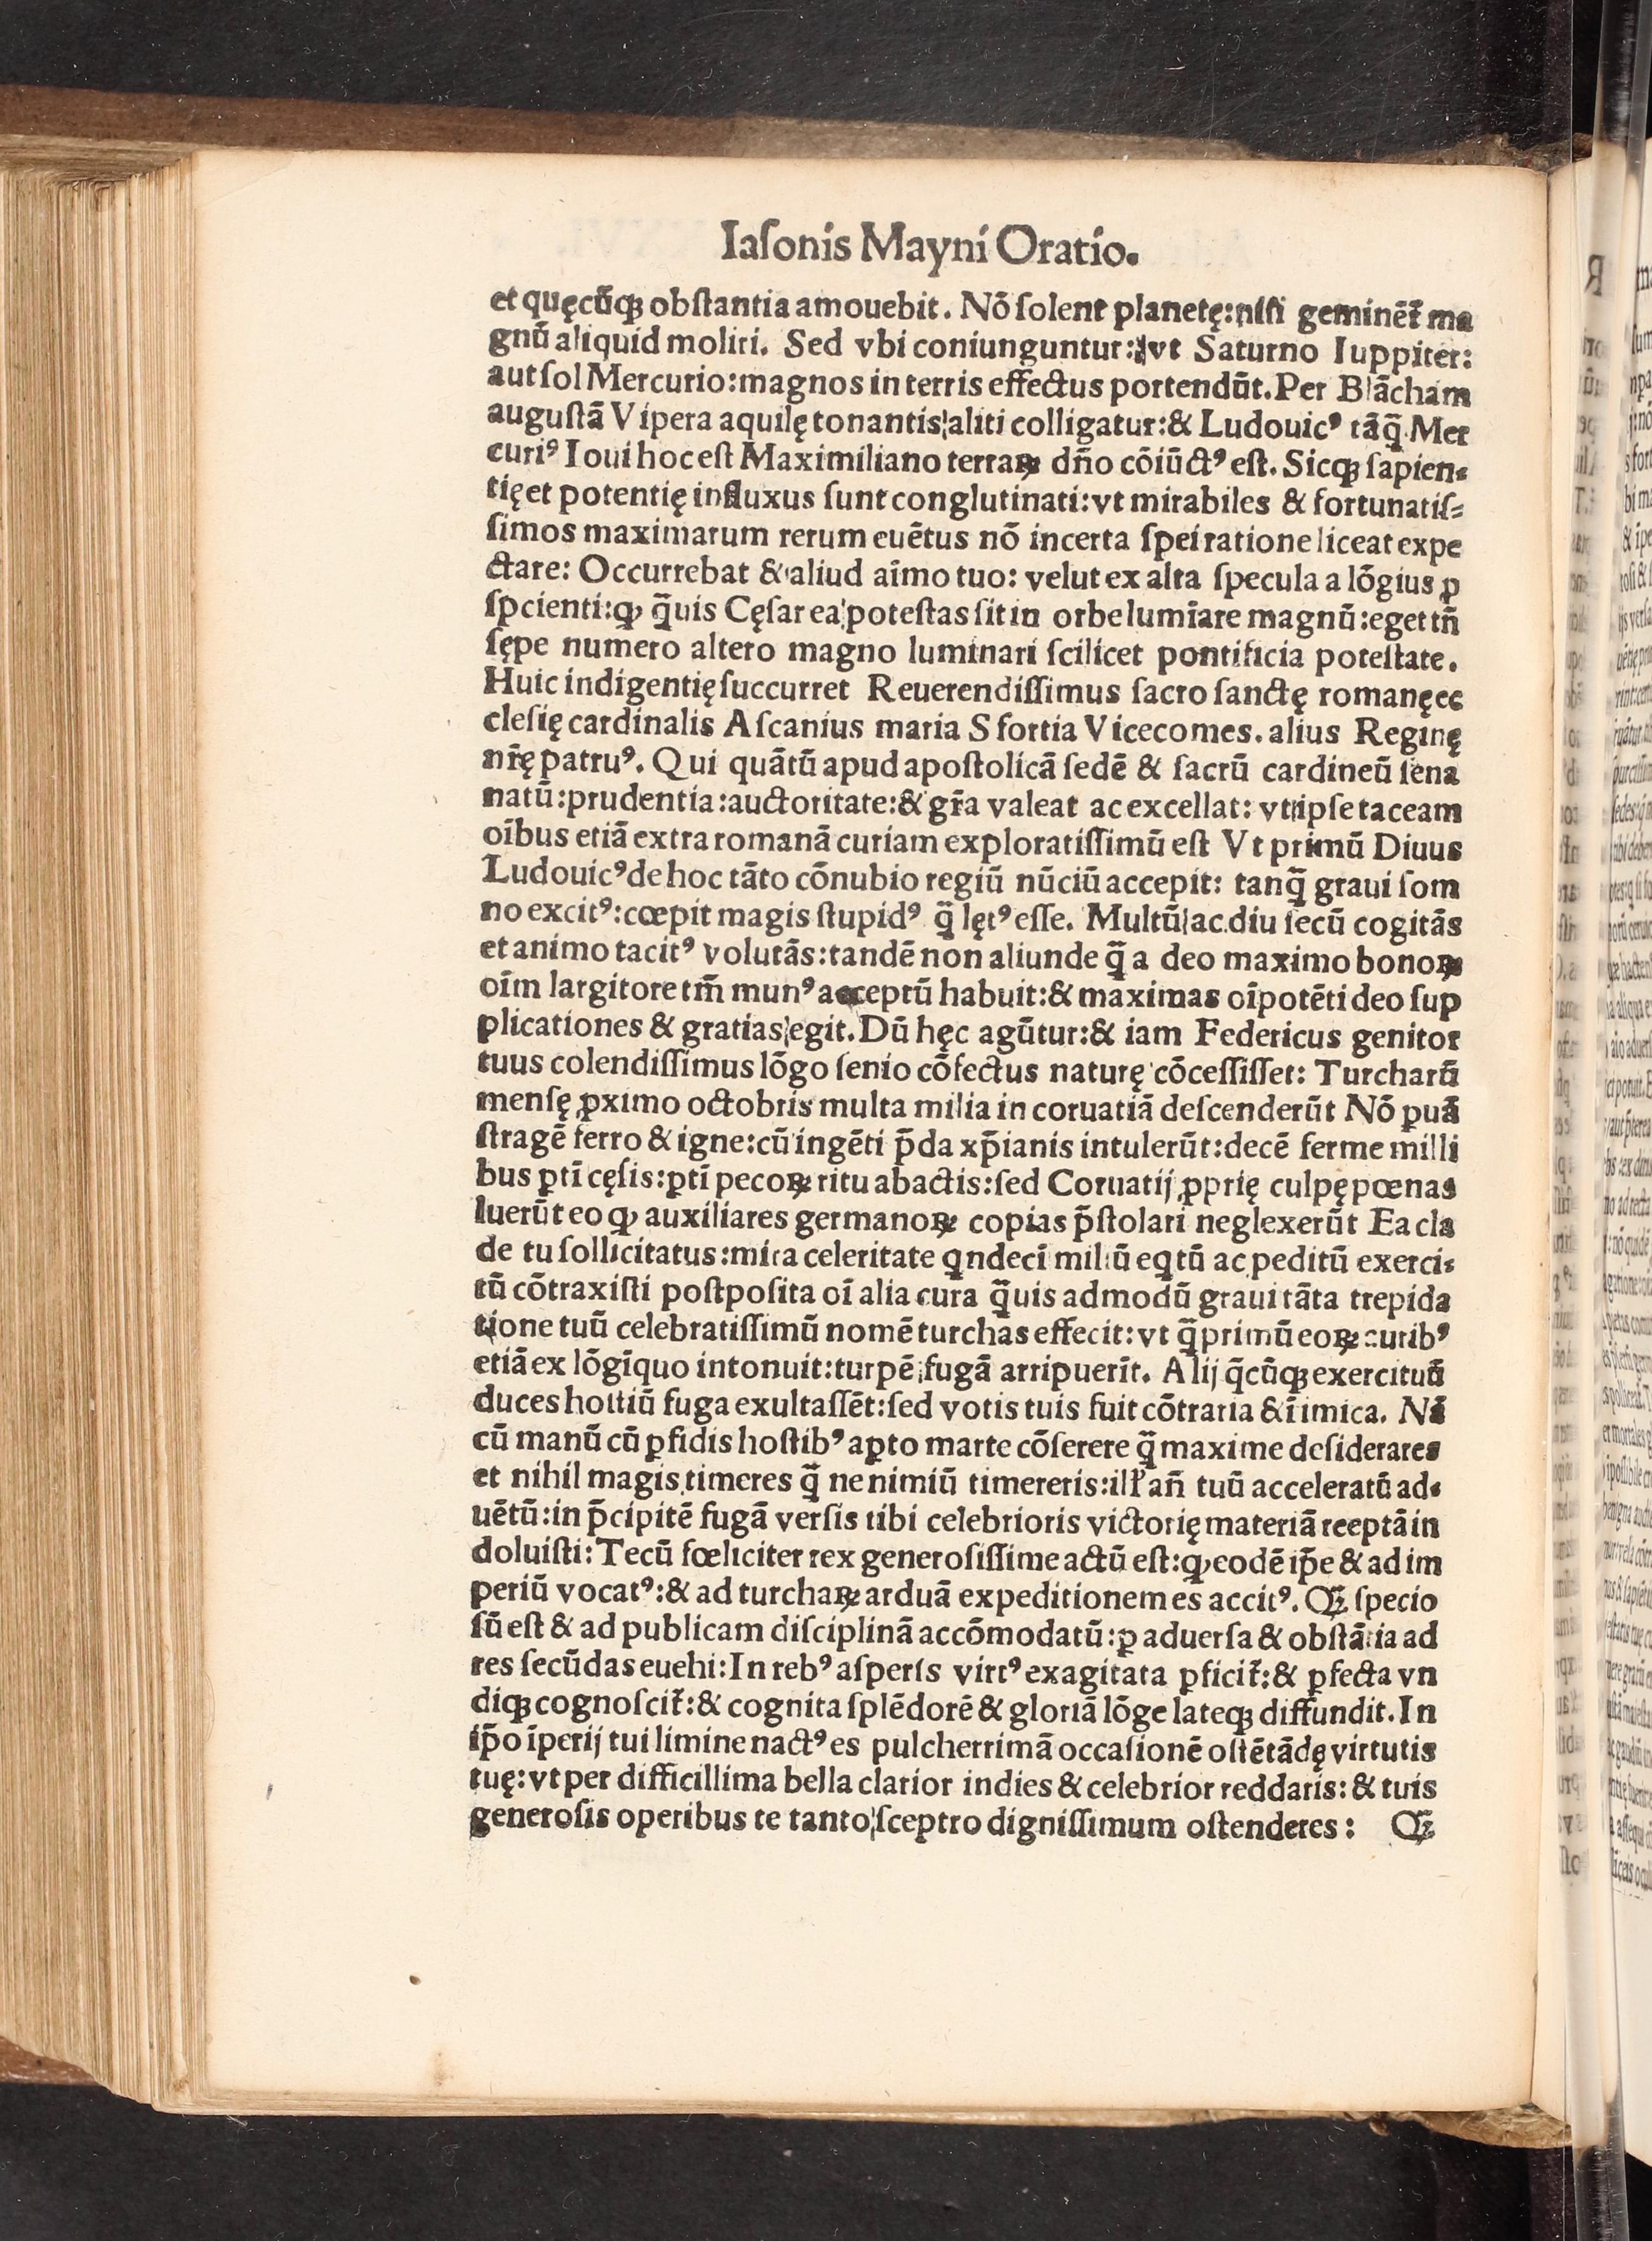 Iaſonis Mayni Oratio.
et quęcūqꝫ obſtantia amouebit. Nō ſolent planetę:niſi geminēt̃ ma
gnū aliquid moliri. Sed vbi coniunguntur:vt Saturno Iuppiter:
aut ſol Mercurio:magnos in terris effectus portendūt.Per Blācham
auguſtā Vipera aquilę tonantis aliti colligatur:& Ludouicꝰ tāq̄ Mer
curiꝰ Ioui hoc eſt Maximiliano terraꝝ dn̄o cōiūctꝰ eſt. Sicqꝫ ſapien⸗
tię et potentię influxus ſunt conglutinati:vt mirabiles & fortunatiſ⸗
ſimos maximarum rerum euētus nō incerta ſpei ratione liceat expe
ctare: Occurrebat & aliud aīmo tuo: velut ex alta ſpecula a lōgius ꝓ
ſpcienti:ꝙ q̄uis Cęſar ea poteſtas ſit in orbe lumīare magnū:eget tn̄
ſępe numero altero magno luminari ſcilicet pontificia poteſtate.
Huic indigentię ſuccurret Reuerendiſſimus ſacro ſanctę romanę ec
cleſię cardinalis Aſcanius maria Sfortia Vicecomes. alius Reginę
nr̄ę patruꝰ. Qui quātū apud apoſtolicā ſedē & ſacrū cardineū ſena
natū:prudentia:auctoritate:& gr̄a valeat ac excellat: vt ipſe taceam
oībus etiā extra romanā curiam exploratiſſimū eſt Vt primū Diuus
Ludouicꝰ de hoc tāto cōnubio regiū nūciū accepit: tanq̄ graui ſom
no excitꝰ:cœpit magis ſtupidꝰ q̄ lętꝰ eſſe. Multū ac diu ſecū cogitās
et animo tacitꝰ volutās:tandē non aliunde q̄ a deo maximo bonoꝝ
oīm largitore tm̄ munꝰ acceptū habuit:& maximas oīpotēti deo ſup
plicationes & gratias egit. Dū hęc agūtur:& iam Federicus genitor
tuus colendiſſimus lōgo ſenio cōfectus naturę cōceſſiſſet: Turcharū
menſę ꝓximo octobris multa milia in coruatiā deſcenderūt Nō puā
ſtragē ferro & igne:cū ingēti p̄da xp̄ianis intulerūt:decē ferme milli
bus ꝑtī cęſis:ꝑtī pecoꝝ ritu abactis:ſed Coruatij ꝓprię culpę pœnas
luerūt eo ꝙ auxiliares germanoꝝ copias p̄ſtolari neglexerūt Ea cla
de tu ſollicitatus:mira celeritate qndecī miliū eqtū ac peditū exerci⸗
tū cōtraxiſti poſtpoſita oī alia cura q̄uis admodū graui tāta trepida
tione tuū celebratiſſimū nomē turchas effecit: vt q̄primū eoꝝ auribꝰ
etiā ex lōgīquo intonuit:turpē fugā arripuerīt. Alij q̄cūqꝫ exercituū
duces hoſtiū fuga exultaſſēt:ſed votis tuis fuit cōtraria & īimica. Nā
cū manū cū ꝑfidis hoſtibꝰ aꝑto marte cōſerere q̄ maxime deſiderares
et nihil magis timeres q̄ ne nimiū timereris: an̄ tuū acceleratū ad⸗
uētū:in p̄cipitē fugā verſis tibi celebrioris victorię materiā reeptā in
doluiſti: Tecū fœliciter rex generoſiſſime actū eſt:ꝙ eodē ip̄e & ad im
periū vocatꝰ:& ad turchaꝝ arduā expeditionem es accitꝰ. Qꝫ ſpecio
ſū eſt & ad publicam diſciplinā accōmodatū:ꝑ aduerſa & obſtātia ad
res ſecūdas euehi:In rebꝰ aſperis virtꝰ exagitata ꝑficit̃:& ꝑfecta vn
diqꝫ cognoſcit̃:& cognita ſplēdorē & gloriā lōge lateqꝫ diffundit. In
ip̄o īperij tui limine nactꝰ es pulcherrimā occaſionē oſtētādę virtutis
tuę: vt per difficillima bella clarior indies & celebrior reddaris: & tuis
generoſis operibus te tanto ſceptro digniſſimum oſtenderes: Qꝫ